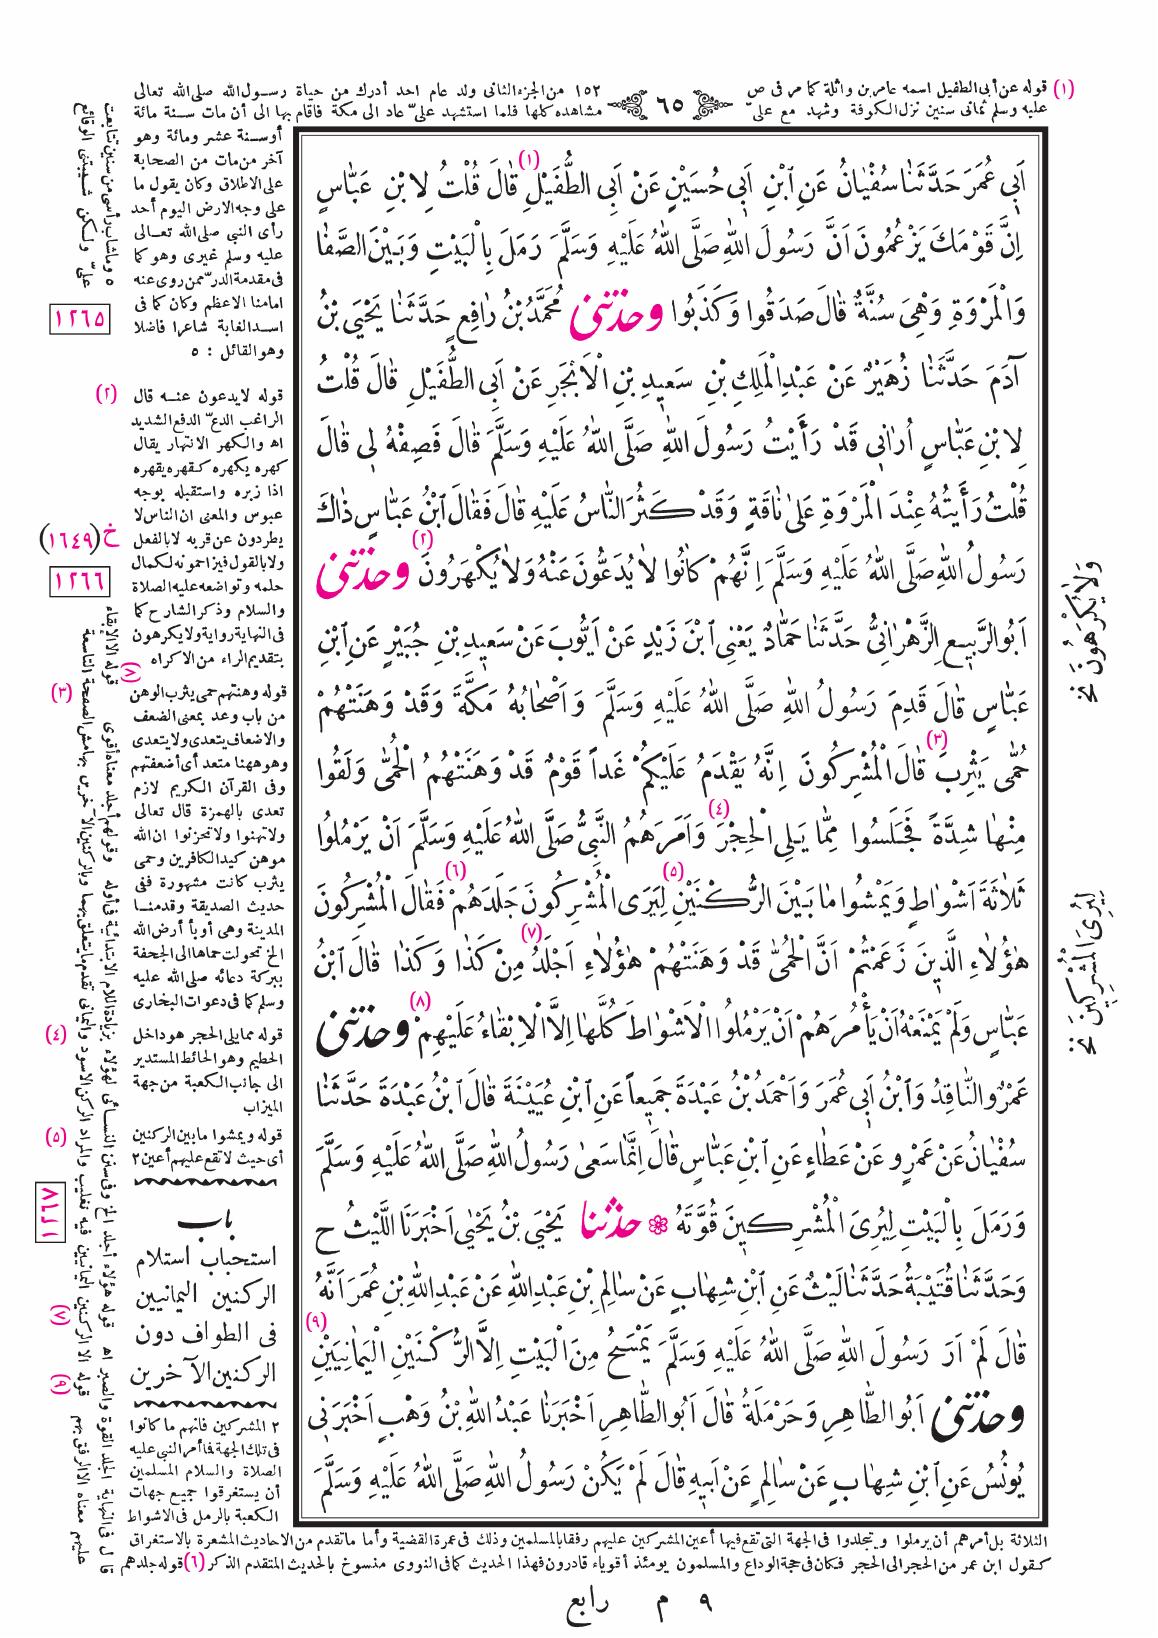 (١) قوله عن أبى الطفيل اسمه عامر بن واثلة كما مر فى ص ١٥٢ من الجزء الثانى ولد عام احد أدرك من حياة رسول الله صلى الله تعالى
٦٥
عليه وسلم ثمانى سنين نزل الكوفة وشهد مع علىّ مشاهده كلها فلما استشهد علىّ عاد الى مكة فاقام بها الى أن مات سنة مائة
أوسنة عشر ومائة وهو
آخر من مات من الصحابة
على الاطلاق وكان يقول ما
على وجه الارض اليوم أحد
رأى النبى صلى الله تعالى
عليه وسلم غيرى وهو كما
فى مقدمة الدرّ ممن روى عنه
امامنا الاعظم وكان كما فى
اسد الغابة شاعرا فاضلا
وهو القائل : ٥
٥ وماشاب رأسى من سنين تتابعت
علىّ ولكن شيبتنى الوقائع
اَبِى عُمَرَ حَدَّثَنَا سُفْيَانُ عَنِ ابْنِ اَبِى حُسَيْنٍ عَنْ اَبِى الطُّفَيْلِ (١) قَالَ قُلْتُ لِابْنِ عَبَّاسٍ
اِنَّ قَوْمَكَ يَزْعُمُونَ اَنَّ رَسُولَ اللهِ صَلَّى اللهُ عَلَيْهِ وَسَلَّمَ رَمَلَ بِالْبَيْتِ وَبَيْنَ الصَّفَا
وَالْمَرْوَةِ وَهْىَ سُنَّةٌ قَالَ صَدَقُوا وَكَذَبُوا وحدثنى مُحَمَّدُ بْنُ رَافِعٍ حَدَّثَنَا يَحْيَى بْنُ
آدَمَ حَدَّثَنَا زُهَيْرٌ عَنْ عَبْدِ الْمَلِكِ بْنِ سَعِيدِ بْنِ الْاَبْجَرِ عَنْ اَبِى الطُّفَيْلِ قَالَ قُلْتُ
لِابْنِ عَبَّاسٍ اُرَانِى قَدْ رَأَيْتُ رَسُولَ اللهِ صَلَّى اللهُ عَلَيْهِ وَسَلَّمَ قَالَ فَصِفْهُ لِى قَالَ
قُلْتُ رَأَيْتُهُ عِنْدَ الْمَرْوَةِ عَلَى نَاقَةٍ وَقَدْ كَثُرَ النَّاسُ عَلَيْهِ قَالَ فَقَالَ ابْنُ عَبَّاسٍ ذَاكَ
رَسُولُ اللهِ صَلَّى اللهُ عَلَيْهِ وَسَلَّمَ اِنَّهُمْ كَانُوا لَا يُدَعُّونَ عَنْهُ وَلَا يُكْهَرُونَ (٢) وحدثنى
اَبُو الرَّبِيعِ الزَّهْرَانِىُّ حَدَّثَنَا حَمَّادٌ يَعْنِى ابْنَ زَيْدٍ عَنْ اَيُّوبَ عَنْ سَعِيدِ بْنِ جُبَيْرٍ عَنِ ابْنِ
عَبَّاسٍ قَالَ قَدِمَ رَسُولُ اللهِ صَلَّى اللهُ عَلَيْهِ وَسَلَّمَ وَاَصْحَابُهُ مَكَّةَ وَقَدْ وَهَنَتْهُمْ
حُمَّى يَثْرِبَ (٣) قَالَ الْمُشْرِكُونَ اِنَّهُ يَقْدَمُ عَلَيْكُمْ غَداً قَوْمٌ قَدْ وَهَنَتْهُمُ الْحُمَّى وَلَقُوا
مِنْهَا شِدَّةً فَجَلَسُوا مِمَّا يَلِى الْحِجْرَ (٤) وَاَمَرَهُمُ النَّبِىُّ صَلَّى اللهُ عَلَيْهِ وَسَلَّمَ اَنْ يَرْمُلُوا
ثَلَاثَةَ اَشْوَاطٍ وَيَمْشُوا مَا بَيْنَ الرُّكْنَيْنِ (٥) لِيَرَى الْمُشْرِكُونَ جَلَدَهُمْ (٦) فَقَالَ الْمُشْرِكُونَ
هٰؤُلَاءِ الَّذِينَ زَعَمْتُمْ اَنَّ الْحُمَّى قَدْ وَهَنَتْهُمْ هٰؤُلَاءِ اَجْلَدُ (٧) مِنْ كَذَا وَكَذَا قَالَ ابْنُ
عَبَّاسٍ وَلَمْ يَمْنَعْهُ اَنْ يَأْمُرَهُمْ اَنْ يَرْمُلُوا الْاَشْوَاطَ كُلَّهَا اِلَّا الْاِبْقَاءُ عَلَيْهِمْ (٨) وحدثنى
عَمْرٌو النَّاقِدُ وَابْنُ اَبِى عُمَرَ وَاَحْمَدُ بْنُ عَبْدَةَ جَمِيعاً عَنِ ابْنِ عُيَيْنَةَ قَالَ ابْنُ عَبْدَةَ حَدَّثَنَا
سُفْيَانُ عَنْ عَمْرٍو عَنْ عَطَاءٍ عَنِ ابْنِ عَبَّاسٍ قَالَ اِنَّمَا سَعَى رَسُولُ اللهِ صَلَّى اللهُ عَلَيْهِ وَسَلَّمَ
وَرَمَلَ بِالْبَيْتِ لِيُرِىَ الْمُشْرِكِينَ قُوَّتَهُ حدثنا يَحْيَى بْنُ يَحْيَى اَخْبَرَنَا اللَّيْثُ ح
وَحَدَّثَنَا قُتَيْبَةُ حَدَّثَنَا لَيْثٌ عَنِ ابْنِ شِهَابٍ عَنْ سَالِمِ بْنِ عَبْدِ اللهِ عَنْ عَبْدِ اللهِ بْنِ عُمَرَ اَنَّهُ
قَالَ لَمْ اَرَ رَسُولَ اللهِ صَلَّى اللهُ عَلَيْهِ وَسَلَّمَ يَمْسَحُ مِنَ الْبَيْتِ اِلَّا الرُّكْنَيْنِ الْيَمَانِيَيْنِ (٩)
وحدثنى اَبُو الطَّاهِرِ وَحَرْمَلَةُ قَالَ اَبُو الطَّاهِرِ اَخْبَرَنَا عَبْدُ اللهِ بْنُ وَهْبٍ اَخْبَرَنِى
يُونُسُ عَنِ ابْنِ شِهَابٍ عَنْ سَالِمٍ عَنْ اَبِيهِ قَالَ لَمْ يَكُنْ رَسُولُ اللهِ صَلَّى اللهُ عَلَيْهِ وَسَلَّمَ
وَلَا يُكْرَهُونَ نخ
لِيُرِىَ الْمُشْرِكِينَ نخ
١٢٦٥
(٢) قوله لايدعون عنه قال
الراغب الدعّ الدفع الشديد
اه والكهر الانتهار يقال
كهره يكهره كقهره يقهره
اذا زبره واستقبله بوجه
عبوس والمعنى ان الناس لا
يطردون عن قربه لا بالفعل
ولا بالقول فيزاحمونه لكمال
حلمه وتواضعه عليه الصلاة
والسلام وذكر الشارح كما
فى النهاية رواية ولايكرهون
بتقديم الراء من الاكراه
خ (١٦٤٩)
١٢٦٦
(٣) قوله وهنتهم حمى يثرب الوهن
من باب وعد بمعنى الضعف
والاضعاف يتعدى ولا يتعدى
وهو ههنا متعد أى أضعفتهم
وفى القرآن الكريم لازم
تعدى بالهمزة قال تعالى
ولاتهنوا ولاتحزنوا ان الله
موهن كيد الكافرين وحمى
يثرب كانت مشهورة ففى
حديث الصديقة وقدمنا
المدينة وهى أوبأ أرض الله
الخ تحولت حماها الى الجحفة
ببركة دعائه صلى الله عليه
وسلم كما فى دعوات البخارى
(٤) قوله مما يلى الحجر هو داخل
الحطيم وهو الحائط المستدير
الى جانب الكعبة من جهة
الميزاب
(٥) قوله ويمشوا ما بين الركنين
أى حيث لا تقع عليهم أعين ٢
باب
استحباب استلام
الركنين اليمانيين
فى الطواف دون
الركنين الآخرين
٢ المشركين فانهم ما كانوا
فى تلك الجهة فأمر النبى عليه
الصلاة والسلام المسلمين
أن يستغرقوا جميع جهات
الكعبة بالرمل فى الاشواط
الثلاثة بل أمرهم أن يرملوا ويتجلدوا فى الجهة التى تقع فيها أعين المشركين عليهم رفقا بالمسلمين وذلك فى عمرة القضية وأما ما تقدم من الاحاديث المشعرة بالاستغراق
كقول ابن عمر من الحجر الى الحجر فكان فى حجة الوداع والمسلمون يومئذ أقوياء قادرون فهذا الحديث كما فى النووى منسوخ بالحديث المتقدم الذكر (٦) قوله جلدهم
قال فى النهاية الجلد القوة والصبر اه (٧) قوله هؤلاء أجلد الخ وفى سنن النسائى لهؤلاء بزيادة اللام الابتدائية فى أوله وقولهم أجلد معناه أقوى (٨) قوله الا الابقاء
عليهم معناه الا الرفق بهم (٩) قوله الا الركنين اليمانيين فيه تغليب والمراد الركن الاسود واليمانى تقدم ما يتعلق بهما وبالركنين الآخرين بهامش الصفحة التاسعة
٩ م رابع